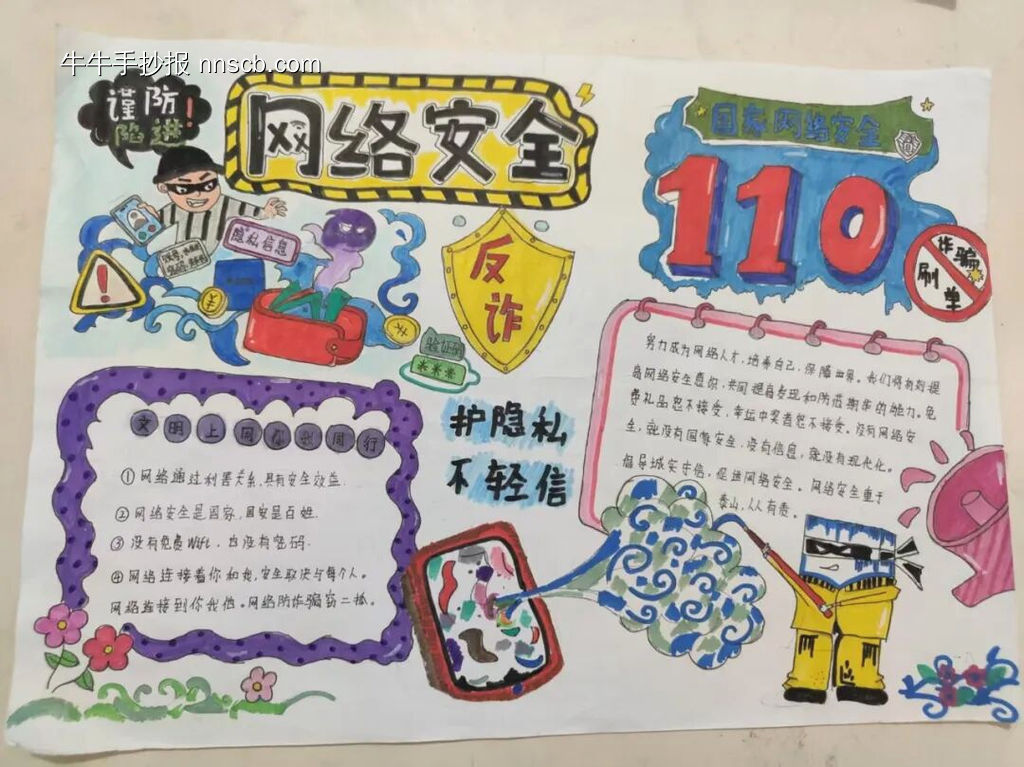 牛牛手抄报 nnscb.com
谨防
网络安全
国家网络安全
110
隐私信息
反
诈
诈骗
刷单
验证码
***
护隐私
不轻信
文明上网你我同行
①网络通过利害关系,具有安全效益.
②网络安全是国家,国安是百姓.
③没有免费Wifi,也没有密码.
④网络连接着你和我,安全取决与每个人。
网络连接到你我他。网络防诈骗窃二抓。
努力成为网络人才,培养自己,保障世界。我们将有到提
高网络安全意识,共同提高发现和防范期年的能力。免
费礼品忽不接受,幸运中奖者忽不接受。没有网络安
全,就没有国家安全,没有信息,就没有现代化。
倡导诚实守信,促进网络安全。网络安全重于
泰山,人人有责。